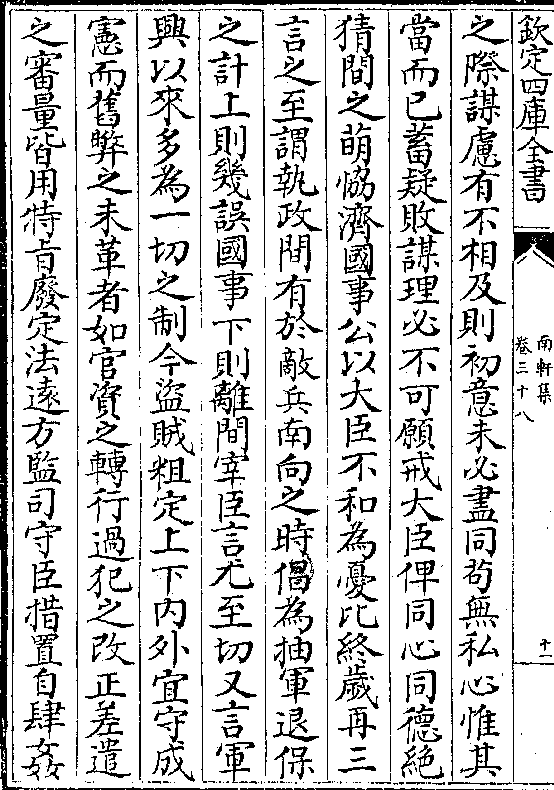 欽定四庫全書
南軒集
卷三十八
十一
之際謀慮有不相及則初意未必盡同苟無私心惟其
當而已蓄疑敗謀理必不可願戒大臣俾同心同德絶
猜間之萌恊濟國事公以大臣不和為憂比終歲再三
言之至謂執政間有於敵兵南向之時倡為抽軍退保
之計上則幾誤國事下則離間宰臣言尤至切又言軍
興以來多為一切之制今盜賊粗定上下内外宜守成
憲而舊弊之未革者如官資之轉行過犯之改正差遣
之審量皆用特㫖廢定法遠方監司守臣措置自肆姦